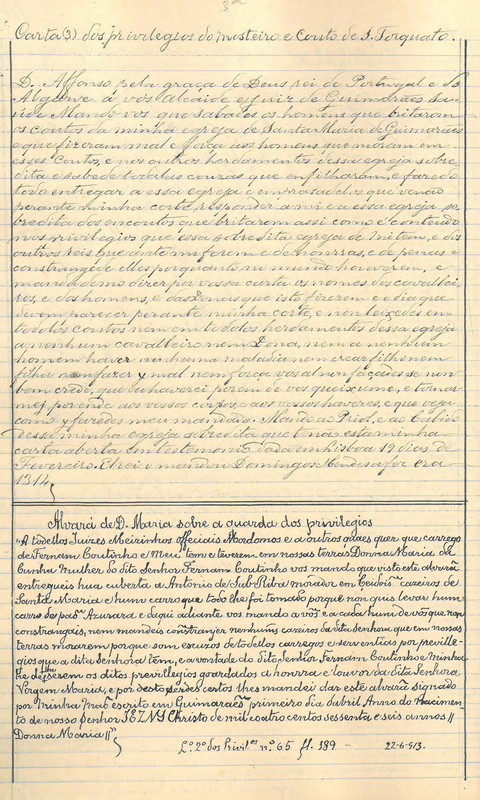 3ª
Carta (3) dos privilegios do mosteiro e Couto de S. Torquato.
D. Affonso pela graça de Deus rei de Portugal e do
Algarve á vós alcaide e juiz de Guimarães
Mando-vos que sabades os homens que britaram
os coutos da minha egreja de Santa Maria de Guimarães
e que fizeram mal e força aos homens que moram em
esses Coutos, e nos outros herdamentos dessa egreja sobre
dita e sabede todalas couzas que en filharam, e faredo
todo entregar a essa egreja e emprasadelos que venão
perante minha corte, responder a mi e a essa egreja so
bredita dos encoutos que britaram assi como é conteudo
nos privilegios que essa sobredita egreja de mi tem, e dos
outros reis que ante mi forom e de honrras, e de penas e
constrangede elles por quanto no mundo houverem, e
mandademo dizer por vossa carta os nomes dos cavallei
ros, e dos homens, e das donas que isto fizerem e o dia que
devem parecer perante minha corte, e non leixedes em
todolos coutos nem em todolos herdamentos dessa egreja
a nenhum cavalleiro nem Dona, nem a nenhum
homem haver nenhuma maladia nem crear filho nem
filha nem fazer y mal nem força vos al non façades se non
bem crede, que eu haverei porem de vos queixume, e tornar
mei por ende aos vossos corpos, e aos vossos haveres, e que veja
como y faredes meu mandado. Mando ao Priol, e ao Cabido
dessa minha egreja sobredita que tenão esta minha
carta aberta em testemonio dada em Lisboa 19 dias de
Fevereiro. El rei o mandou Domingos Mendes a fez era
1314
Alvará de D. Maria sobre a guarda dos privilegios
"A todollos Juizes Meirinhos officiais Mordomos e a outros quaes quer que carrego
de Fernam Coutinho e Meu tem e teverem em nossas terras Donna Maria da
Cunha Mulher do dito Senhor Fernam Coutinho vos mando que visto este alvará
entregueis hua cuberta a António de Sub-Riba morador em cazeiros de
Santa Maria e hum carro que todo lhe foi tomado porque non quis levar hum
carro de pas Azurara e daqui adiante vos mando a vós e a cada hum de vós que non
constrangais, nem mandeis constranger nenhuns cazeiros da dita senhora que em nossas
terras morarem porque som escuzos de todollos carregos e serventias por preville-
gios que a dita Senhora tem, e a vontade do dito Senhor Fernam Coutinho e Minha
he de serem os ditos previlegios goardados a honrra e louvor da dita Senhora
Virgem Maria, e por desto serdes certos lhes mandei dar este alvará signado
por Minha mão escrito em Guimarães primeiro dia dabril Anno do Nacimen-
to de nosso Senhor JEZUS Christo de mil e catro centos sessenta e seis annos //
Donna Maria //"
L.º 2.º dos Privil.os n.º 65 fl. 189 — 22-6-913.